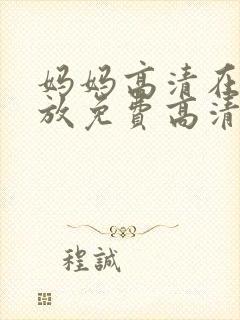 妈妈高清在
放免费高清
程誠